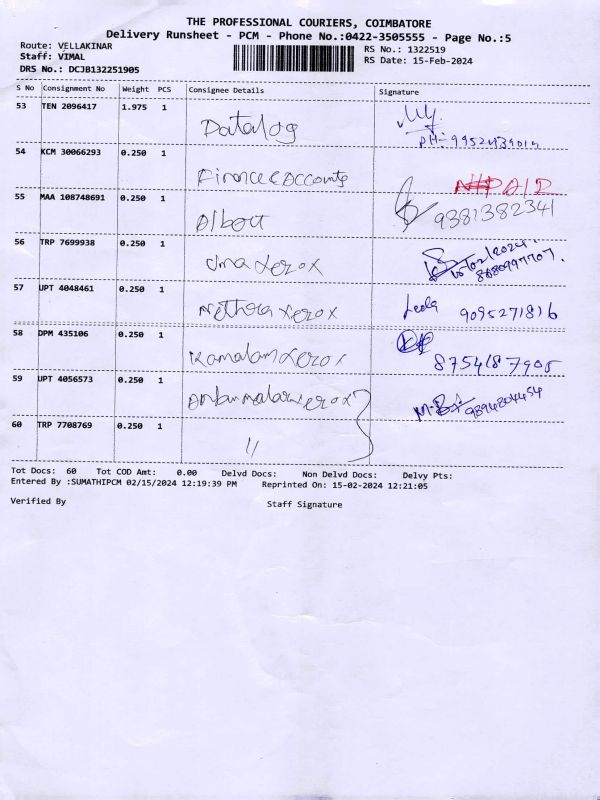 THE PROFESSIONAL COURIERS, COIMBATORE
Delivery Runsheet - PCM - Phone No.:0422-3505555 - Page No.:5
Route: VELLAKINAR
RS No.: 1322519
Staff: VIMAL
RS Date: 15-Feb-2024
DRS No.: DCJB132251905
S No Consignment No Weight PCS Consignee Details Signature
53 TEN 2096417 1.975 1 Datalog
PH:-
54 KCM 30066293 0.250 1 Finance & Accounts
55 MAA 108748691 0.250 1 Albert 9381382341
56 TRP 7699938 0.250 1 Uma Xerox
57 UPT 4048461 0.250 1 Nethra Xerox Leela 9095271816
58 DPM 435106 0.250 1 Kamalam Xerox 8754187905
59 UPT 4056573 0.250 1 Xerox 9894204454
60 TRP 7708769 0.250 1 "
Tot Docs: 60 Tot COD Amt: 0.00 Delvd Docs: Non Delvd Docs: Delvy Pts:
Entered By :SUMATHIPCM 02/15/2024 12:19:39 PM Reprinted On: 15-02-2024 12:21:05
Verified By Staff Signature